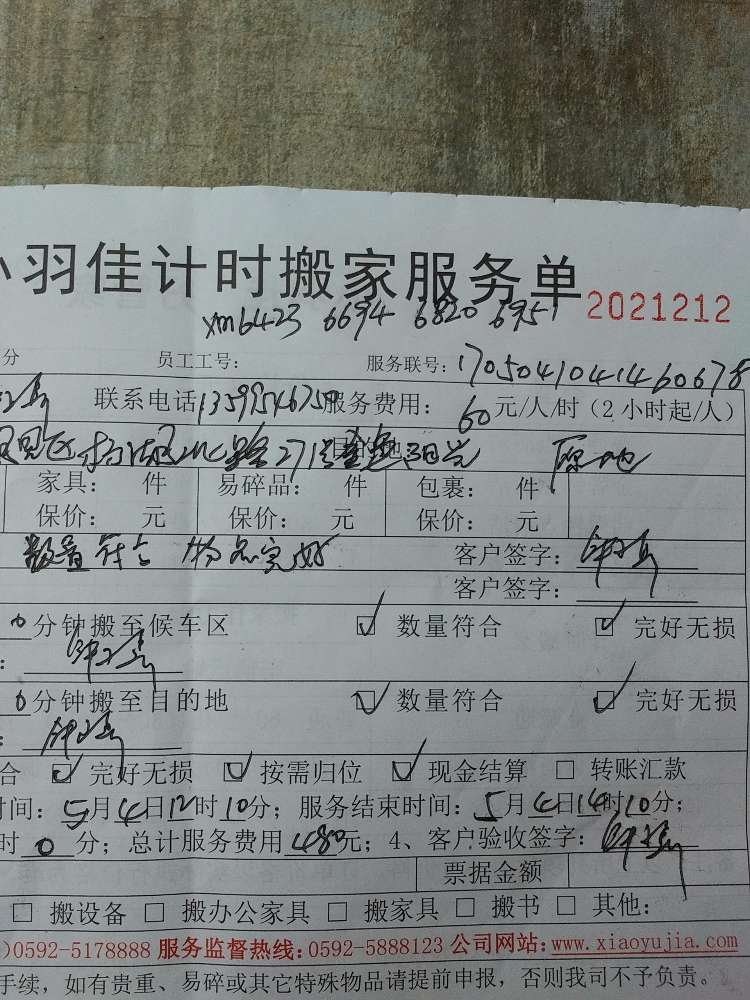 小羽佳计时搬家服务单 2021212
xm6423 6694 6820 6951
分 员工工号: 服务联号: 170504104146 0678
联系电话 13599546750 服务费用: 60 元/人/时（2小时起/人）
路271号 原地
家具: 件 易碎品: 件 包裹: 件
保价: 元 保价: 元 保价: 元
数量符合 物品完好 客户签字:
客户签字:
0分钟搬至候车区 ☑ 数量符合 ☑ 完好无损
:
0分钟搬至目的地 ☑ 数量符合 ☑ 完好无损
:
合 ☑ 完好无损 ☑ 按需归位 ☑ 现金结算 □ 转账汇款
时间: 5月4日12时10分; 服务结束时间: 5月4日14时10分;
时0分; 总计服务费用480元; 4、客户验收签字:
票据金额
□ 搬设备 □ 搬办公家具 □ 搬家具 □ 搬书 □ 其他:
)0592-5178888 服务监督热线:0592-5888123 公司网站:www.xiaoyujia.com
手续，如有贵重、易碎或其它特殊物品请提前申报，否则我司不予负责。